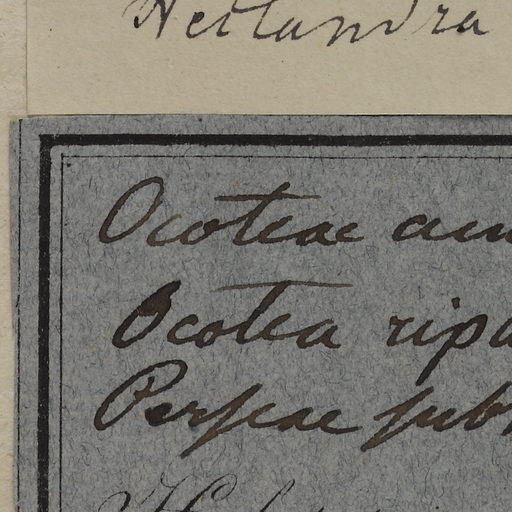 Nectandra
Ocoteae
Ocotea ripa
Perseae sub